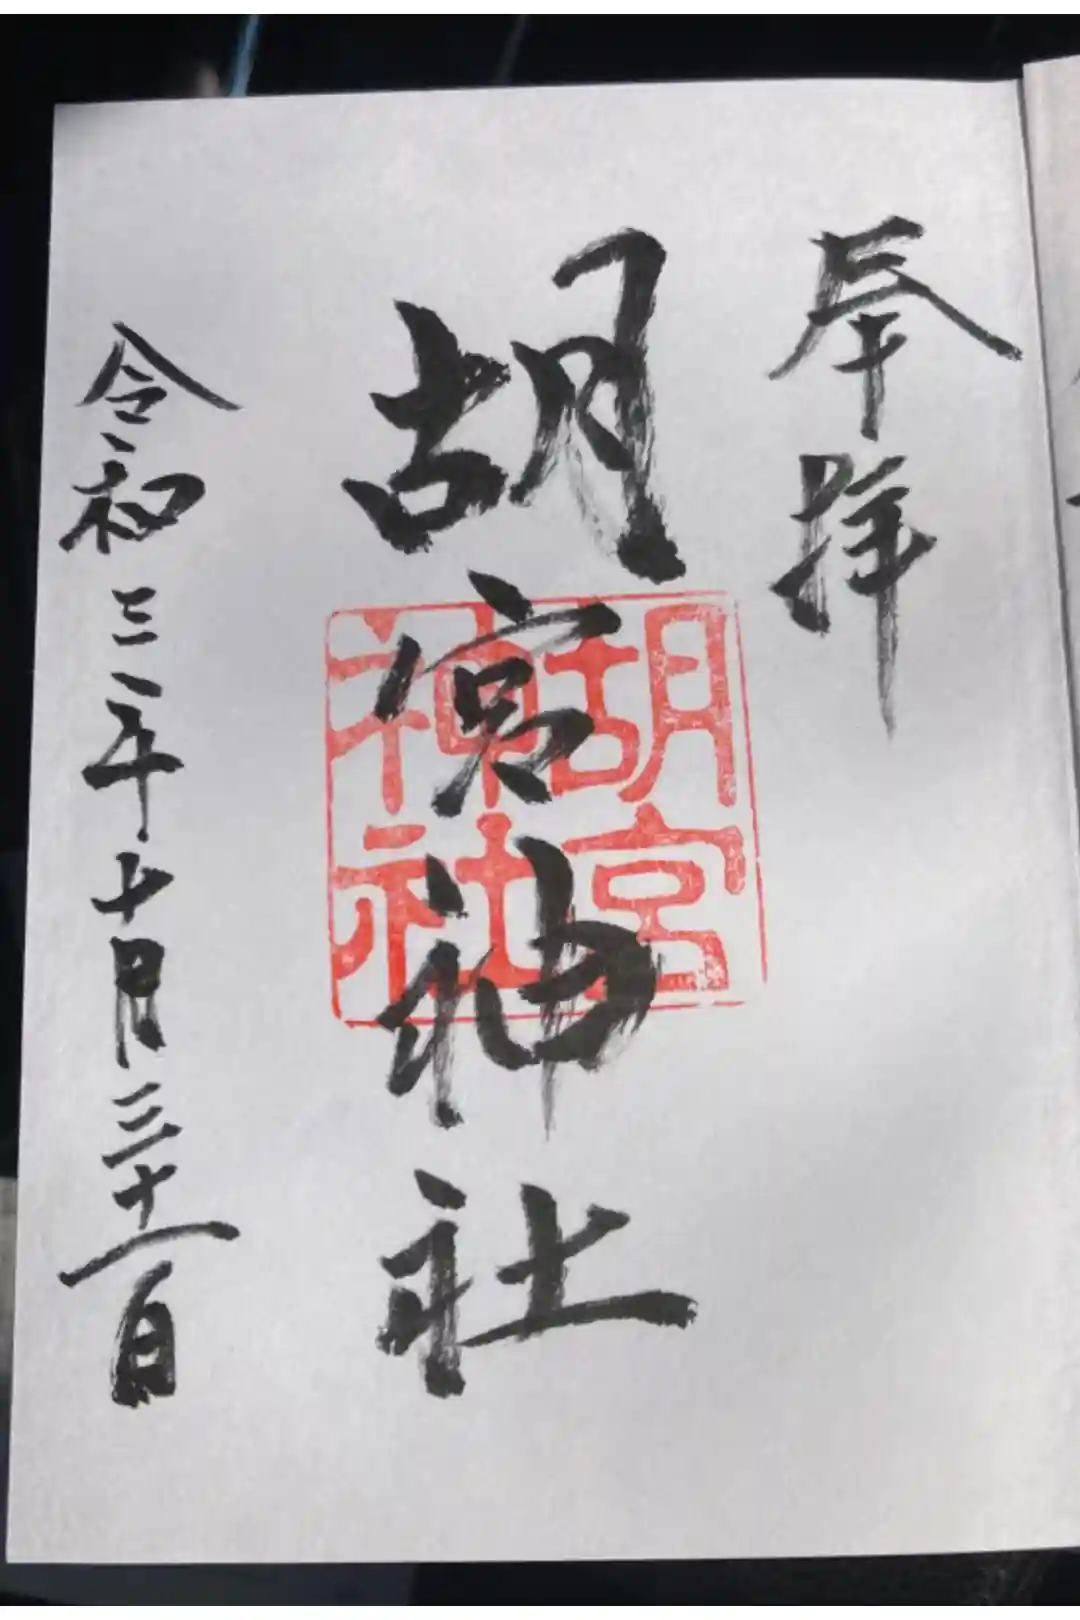 奉拝
胡宮神社
胡宮
神社
令和三年十月三十一日